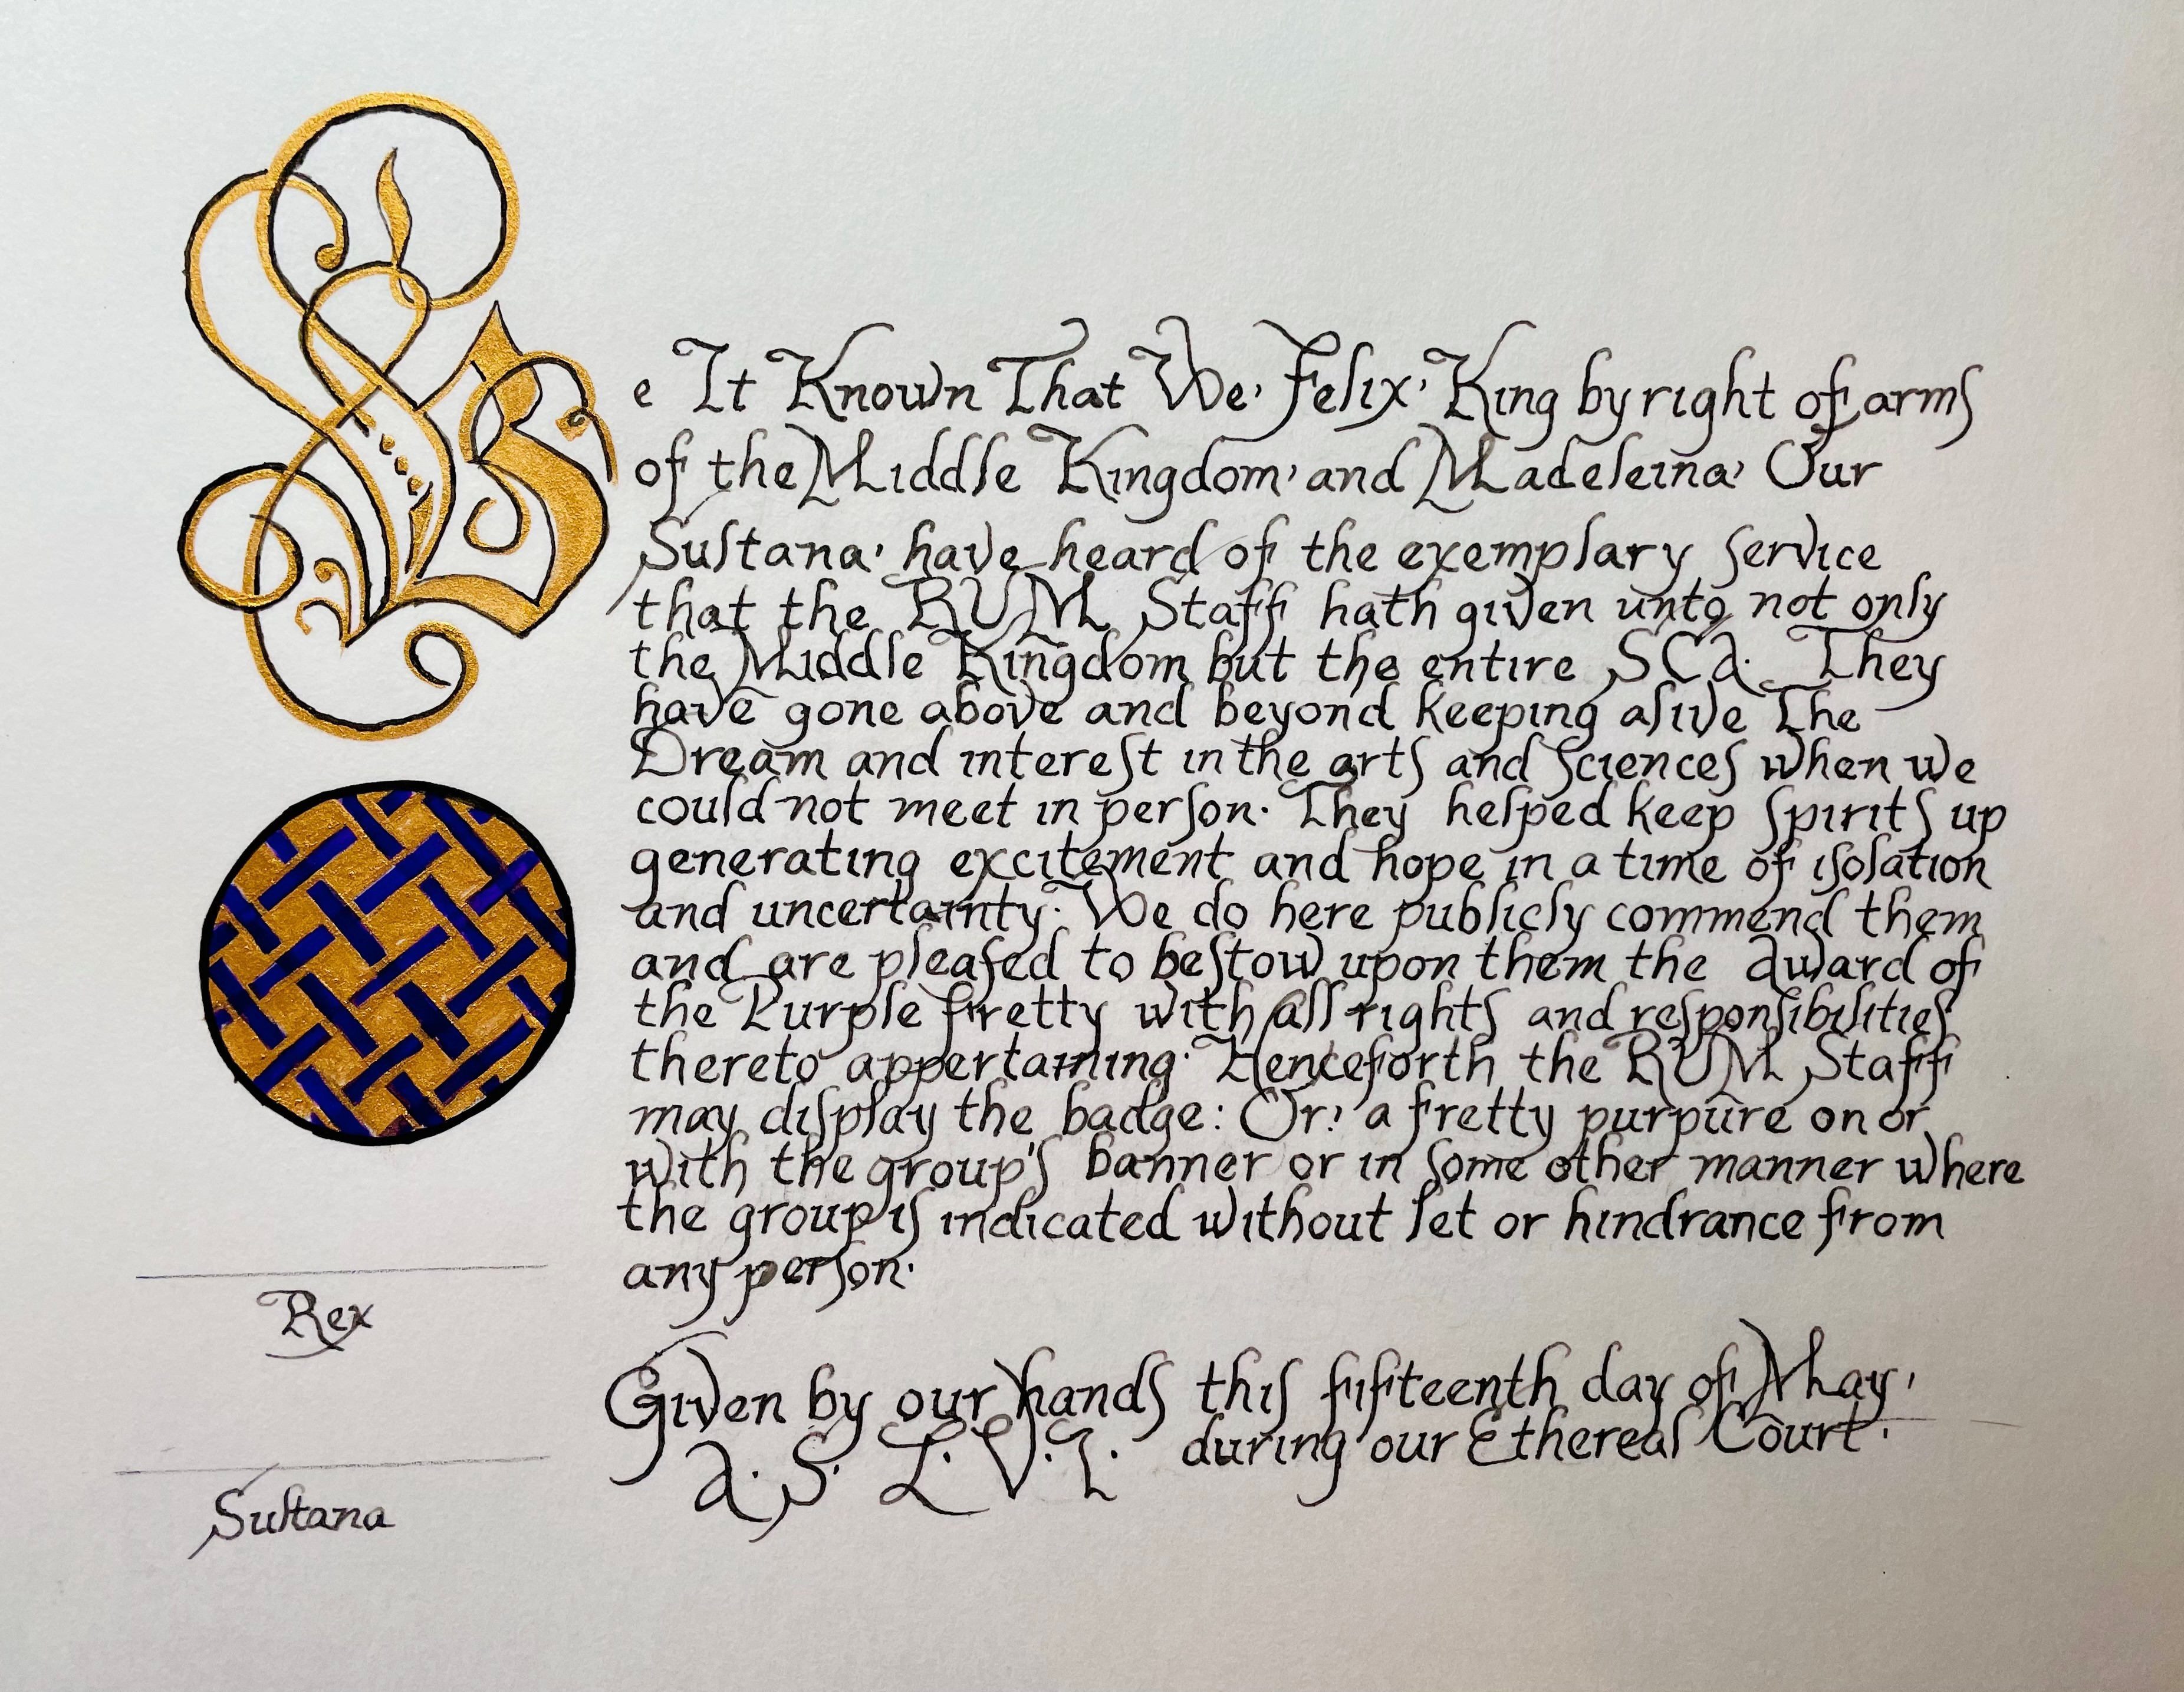 Be It Known That We, Felix, King by right of arms
of the Middle Kingdom, and Madeleina, Our
Sultana, have heard of the exemplary service
that the RUM Staff hath given unto not only
the Middle Kingdom but the entire SCA. They
have gone above and beyond keeping alive The
Dream and interest in the arts and Sciences when we
could not meet in person. They helped keep spirits up
generating excitement and hope in a time of isolation
and uncertainty. We do here publicly commend them
and are pleased to bestow upon them the Award of
the Purple Fretty with all rights and responsibilities
thereto appertaining. Henceforth the RUM Staff
may display the badge: Or, a fretty purpure on or
with the group's banner or in some other manner where
the group is indicated without let or hindrance from
any person.
Given by our hands this fifteenth day of May,
A. S. L. V. I. during our Ethereal Court.
Rex
Sultana